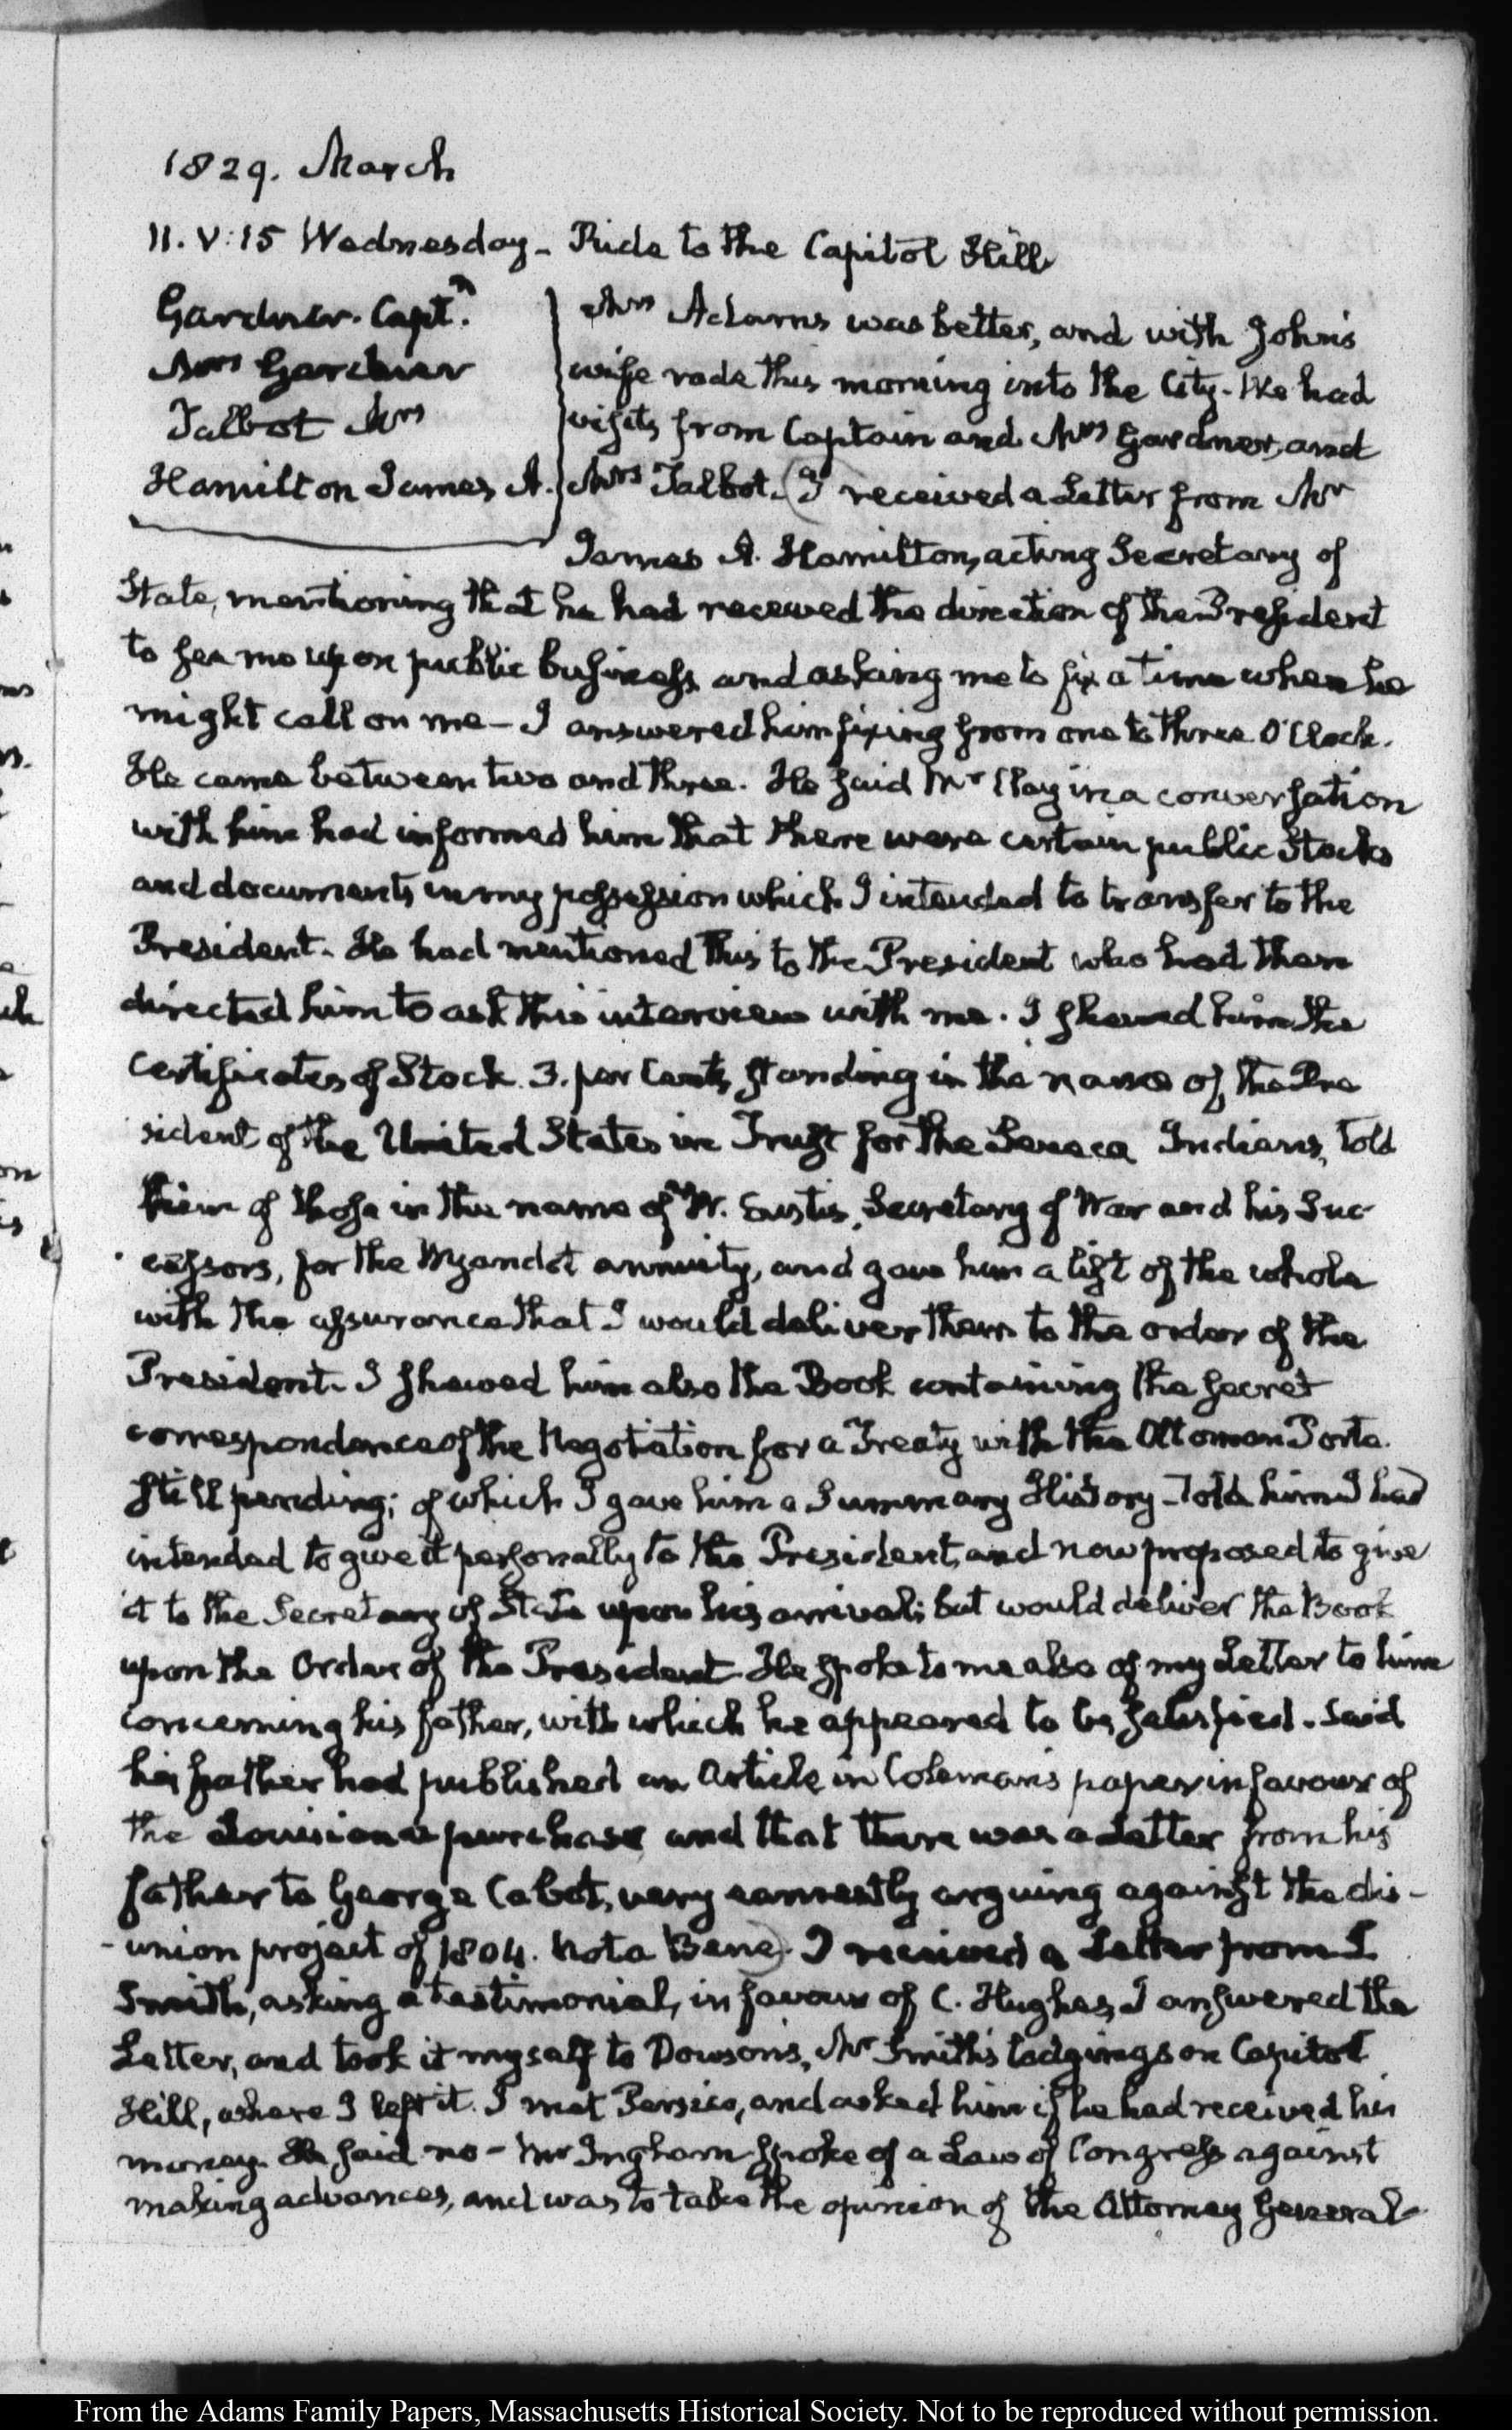 1829. March
11. V:15 Wednesday - Ride to the Capitol Hill
Gardner. Captn.
Mrs Gardner
Talbot Mrs
Hamilton James A.
Mrs Adams was better, and with John's
wife rode this morning into the City. We had
visits from Captain and Mrs Gardner, and
Mrs Talbot. (I received a Letter from Mr
James A. Hamilton, acting Secretary of
State, mentioning that he had received the direction of the President
to see me upon public business and asking me to fix a time when he
might call on me - I answered him fixing from one to three O'Clock.
He came between two and three. He said Mr Clay in a conversation
with him had informed him that there were certain public Stocks
and documents in my possession which I intended to transfer to the
President. He had mentioned this to the President who had then
directed him to ask this interview with me. I shewed him the
Certificates of Stock. 3. per Cents, standing in the name of the Pre
sident of the United States in Trust for the Seneca Indians, told
him of those in the name of W. Eustis, Secretary of War and his Suc-
cessors, for the Wyandot annuity, and gave him a list of the whole
with the assurance that I would deliver them to the order of the
President. I shewed him also the Book containing the secret
correspondence of the Negotiation for a Treaty with the Ottoman Porte.
still pending; of which I gave him a Summary History - Told him I had
intended to give it personally to the President, and now proposed to give
it to the Secretary of State upon his arrival; but would deliver the Book
upon the Order of the President. He spoke to me also of my Letter to him
concerning his father, with which he appeared to be satisfied. Said
his father had published an Article in Coleman's paper in favour of
the Louisiana purchase, and that there was a Letter from his
father to George Cabot, very earnestly arguing against the dis-
-union project of 1804. Nota Bene). I received a Letter from I
Smith, asking a testimonial, in favour of C. Hughes, I answered the
Letter, and took it myself to Dowson's, Mr Smith's lodgings on Capitol
Hill, where I left it. I met Persico, and asked him if he had received his
money. He said no - Mr Ingham spoke of a Law of Congress against
making advances, and was to take the opinion of the Attorney General-
From the Adams Family Papers, Massachusetts Historical Society. Not to be reproduced without permission.